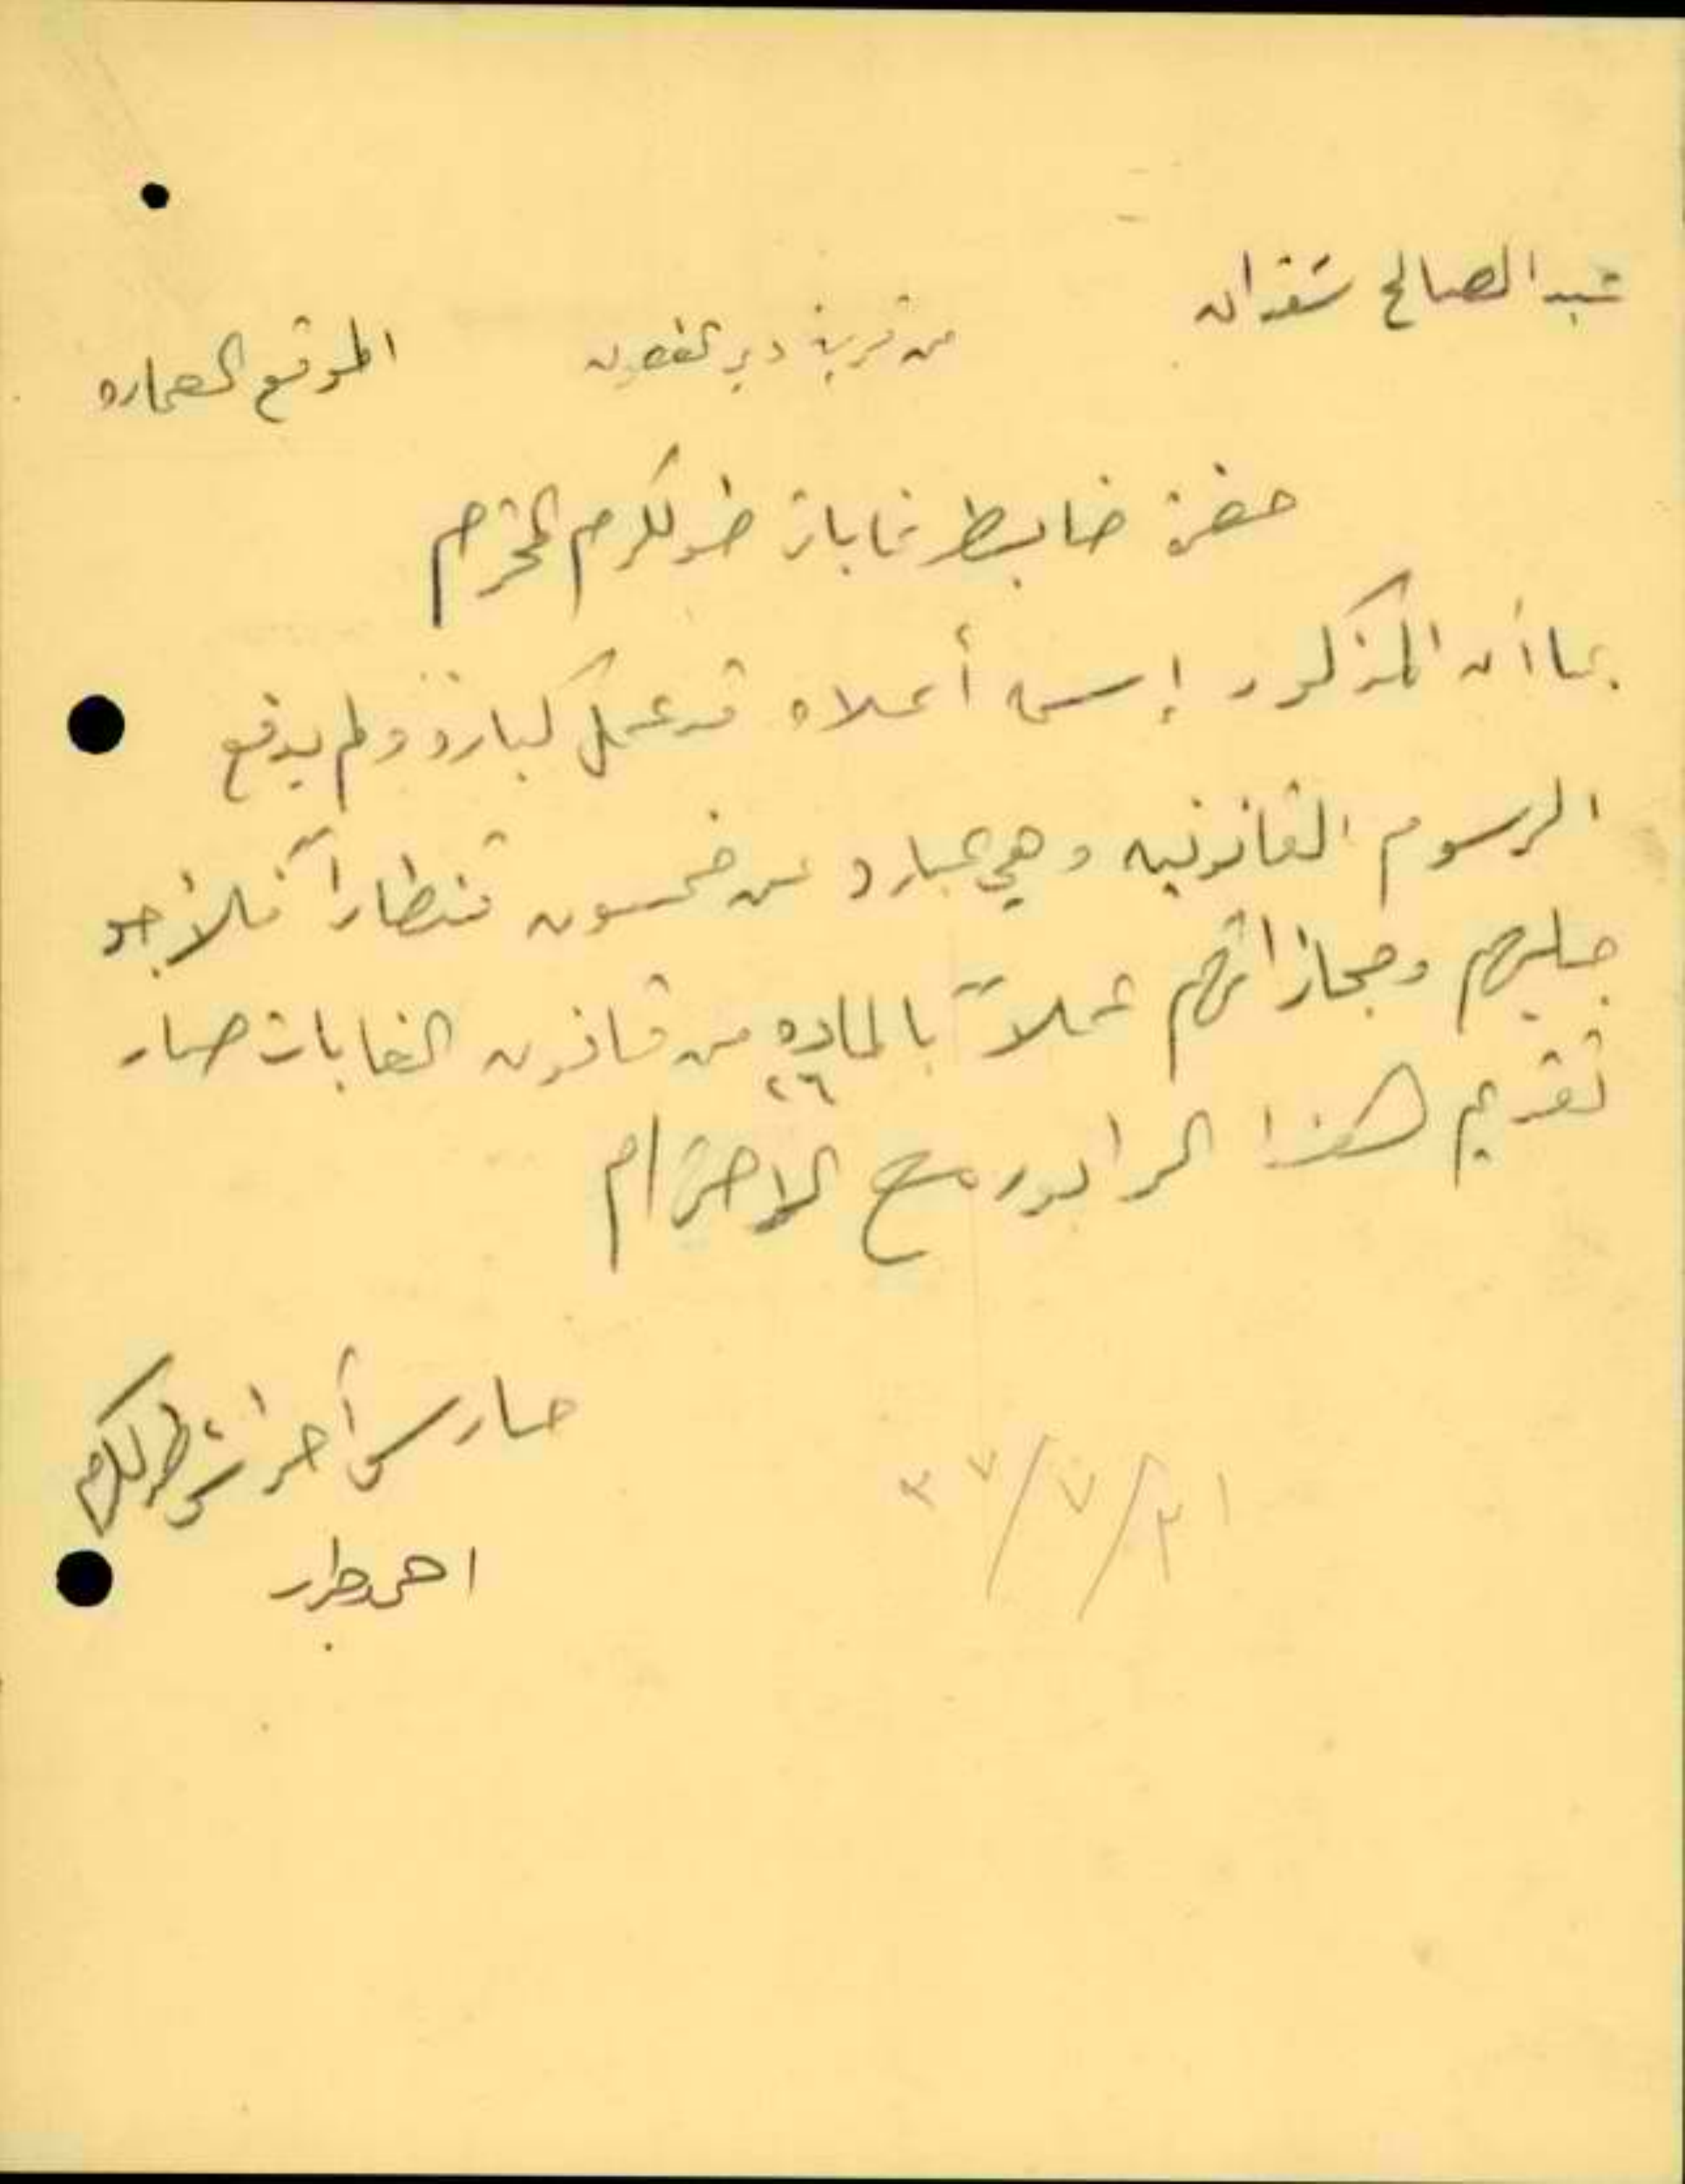 عبد الصالح شقدان
من قرية دير الغصون
الموقع العماره
حضرة ضابط غابات طولكرم المحترم
بما أن المذكور إسمه أعلاه قد عمل كباره ولم يدفع
الرسوم القانونيه وهي عباره عن خمسون قنطاراً فلأجو
جلبهم ومجازاتهم عملاً بالماده ٢٦ من قانون الغابات صار
تقديم هذا الرابور مع الاحترام
حارس أحراش طولكرم
احمد
٢١/٧/٣٧